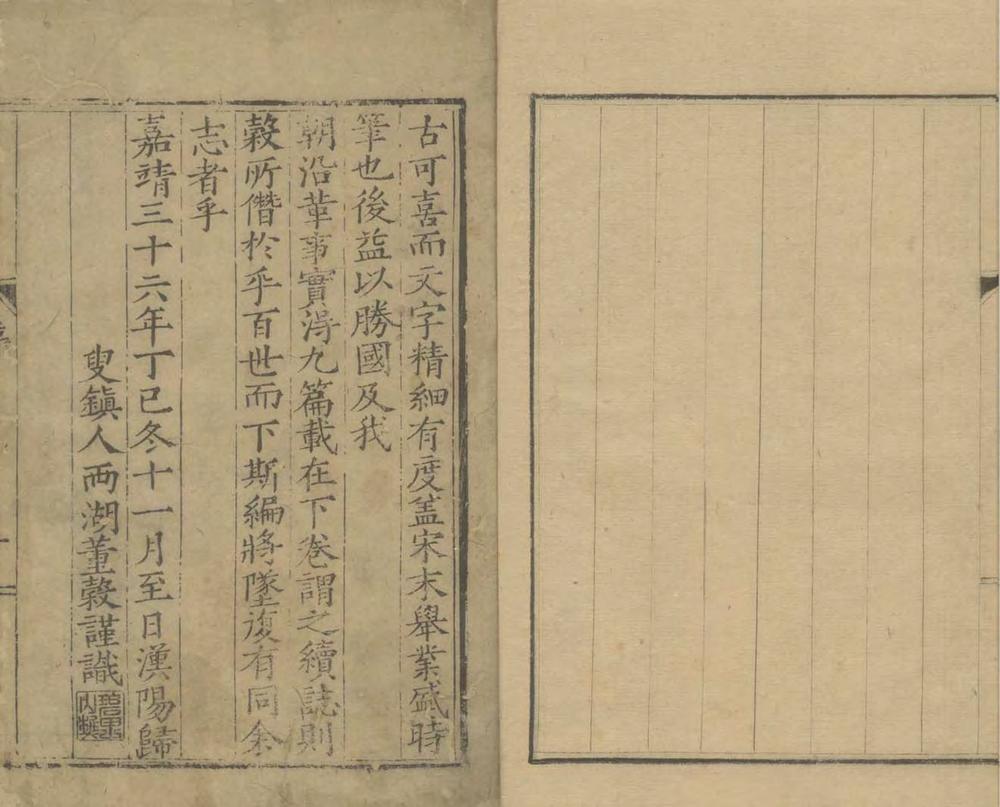 古可喜而文字精細有度盖宋末舉業盛時
筆也後益以勝國及我
朝沿革事實淂九篇載在下卷謂之續誌則
穀所僭於乎百世而下斯編將墜復有同余
志者乎
嘉靖三十六年丁巳冬十一月至日漢陽歸
叟鎮人两湖董穀謹識